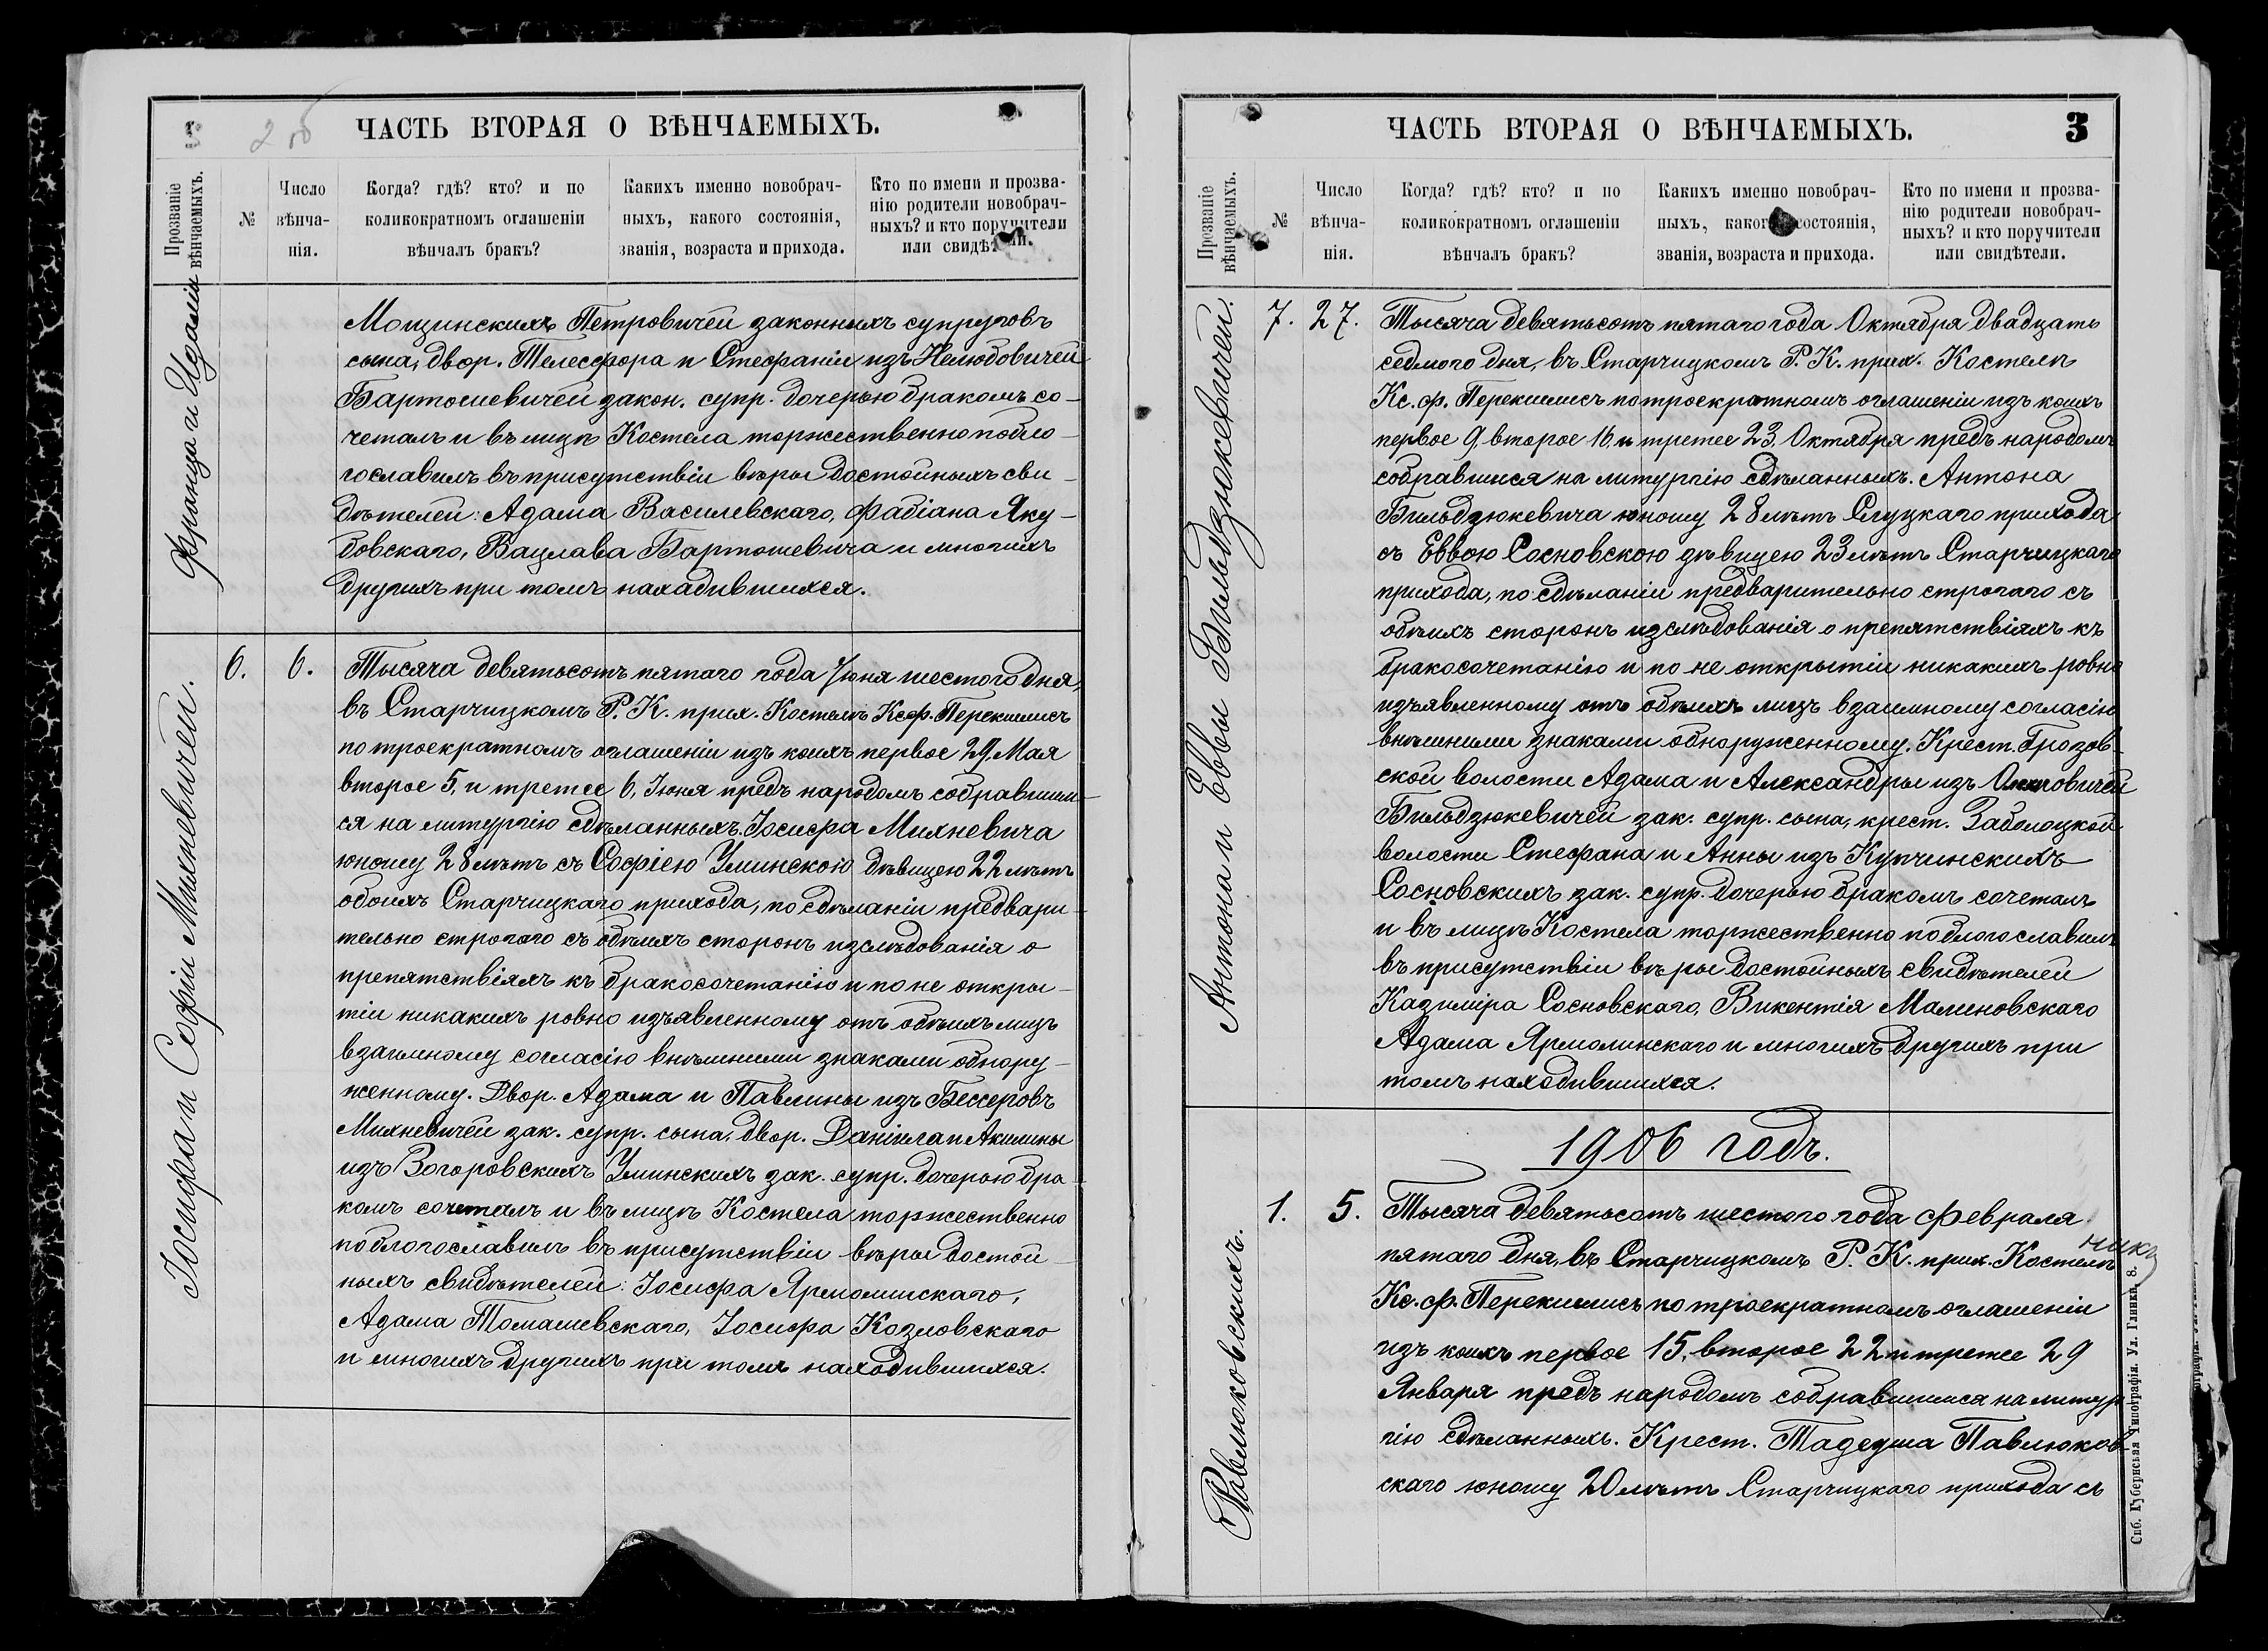 2 об
ЧАСТЬ ВТОРАЯ О ВѢНЧАЕМЫХЪ.
Прозваніе вѣнчаемыхъ.
№
Число вѣнча-нія.
Когда? гдѣ? кто? и по коликократномъ оглашеніи вѣнчалъ бракъ?
Какихъ именно новобрач-ныхъ, какого состоянія, званія, возраста и прихода.
Кто по имени и прозва-нію родители новобрач-ныхъ? и кто поручители или свидѣтели.
Франца и Идаліи
Мощинскихъ Петровичей законныхъ супруговъ
сына, двор. Телесфора и Стефаніи изъ Нелюбовичей
Бартошевичей закон. супр. дочерью бракомъ со-
четалъ и въ лицѣ Костела торжественно побла-
гославилъ въ присутствіи вѣры достойныхъ сви-
дѣтелей: Адама Василевскаго, Фабіана Яку-
бовскаго, Вацлава Бартошевича и многихъ
другихъ при томъ находившихся.
Іосифа и Софіи Михневичей.
6. 6. Тысяча девятьсотъ пятаго года Іюня шестого дня,
въ Старчицкомъ Р. К. прих. Костелѣ Кс. Ф. Перекшлисъ
по троекратномъ оглашеніи изъ коихъ первое 29, Мая
второе 5, и третее 6, Іюня предъ народомъ собравшим-
ся на литургію сдѣланныхъ. Іосифа Михневича
юношу 28 лѣтъ съ Софіею Уминскою дѣвицею 22 лѣтъ
обоихъ Старчицкаго прихода, по сдѣланіи предвари-
тельно строгаго съ обѣихъ сторонъ изслѣдованія о
препятствіяхъ къ бракосочетанію и по не откры-
тіи никакихъ ровно изъявленному отъ обѣихъ лицъ
взаимному согласію внѣшними знаками обнару-
женному. Двор. Адама и Павлины изъ Бессеровъ
Михневичей зак. супр. сына, двор. Даніила и Акилины
изъ Вогоровскихъ Уминскихъ зак. супр. дочерью бра-
комъ сочеталъ и въ лицѣ Костела торжественно
поблагославилъ въ присутствіи вѣры достой-
ныхъ свидѣтелей: Іосифа Ярмолинскаго,
Адама Томашевскаго, Іосифа Козловскаго
и многихъ другихъ при томъ находившихся.
ЧАСТЬ ВТОРАЯ О ВѢНЧАЕМЫХЪ.
3
Прозваніе вѣнчаемыхъ.
№
Число вѣнча-нія.
Когда? гдѣ? кто? и по коликократномъ оглашеніи вѣнчалъ бракъ?
Какихъ именно новобрач-ныхъ, какого состоянія, званія, возраста и прихода.
Кто по имени и прозва-нію родители новобрач-ныхъ? и кто поручители или свидѣтели.
Антона и Еввы Бильдзюкевичей.
7. 27. Тысяча девятьсотъ пятаго года Октября двадцать
седмого дня, въ Старчицкомъ Р. К. прих. Костелѣ
Кс. Ф. Перекшлисъ по троекратномъ оглашеніи изъ коихъ
первое 9, второе 16, и третее 23, Октября предъ народомъ
собравшися на литургію сдѣланныхъ. Антона
Бильдзюкевича юношу 28 лѣтъ Слуцкаго прихода
съ Еввою Сосновскою дѣвицею 23 лѣтъ Старчицкаго
прихода, по сдѣланіи предварительно строгаго съ
обѣихъ сторонъ изслѣдованія о препятствіяхъ къ
бракосочетанію и по не открытіи никакихъ ровно
изъявленному отъ обѣихъ лицъ взаимному согласію
внѣшними знаками обнаруженному. Крест. Грозов-
ской волости Адама и Александры изъ
Бильдзюкевичей зак. супр. сына, крест. Заболоцкой
волости Стефана и Анны изъ Купчинскихъ
Сосновскихъ зак. супр. дочерью бракомъ сочеталъ
и въ лицѣ Костела торжественно поблагославилъ
въ присутствіи вѣры достойныхъ свидѣтелей
Казиміра Сосновскаго, Викентія Малиновскаго
Адама Ярмолинскаго и многихъ другихъ при
томъ находившихся.
1906 годъ.
Павлюковскихъ.
1. 5. Тысяча девятьсотъ шестого года Февраля
пятаго дня, въ Старчицкомъ Р. К. прих. Костелѣ
Кс. Ф. Перекшлисъ по троекратномъ оглашеніи
изъ коихъ первое 15, второе 22 и третее 29
Января предъ народомъ собравшимся на литур-
гію сдѣланныхъ. Крест. Тадеуша Павлюков-
скаго юношу 20 лѣтъ Старчицкаго прихода съ
Спб. Губернская Типографія. Ул. Глинки, 8.